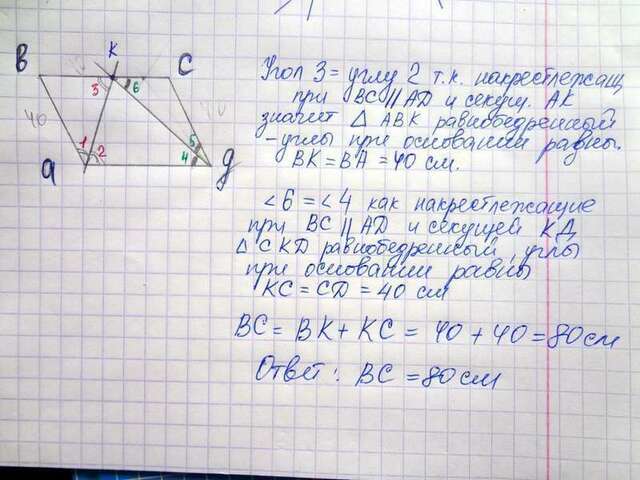 B K C
3 6
40
1 2 5 4
a g
Угол 3 = углу 2 т.к. накрестлежащ
при BC || AD и секущ. AK
значит △ ABK равнобедренный
- углы при основании равны.
BK = BA = 40 см.
<6 = <4 как накрестлежащие
при BC || AD и секущей КД
△ CKD равнобедренный, углы
при основании равны
KC = CD = 40 см
BC = BK + KC = 40 + 40 = 80 см
Ответ: BC = 80 см